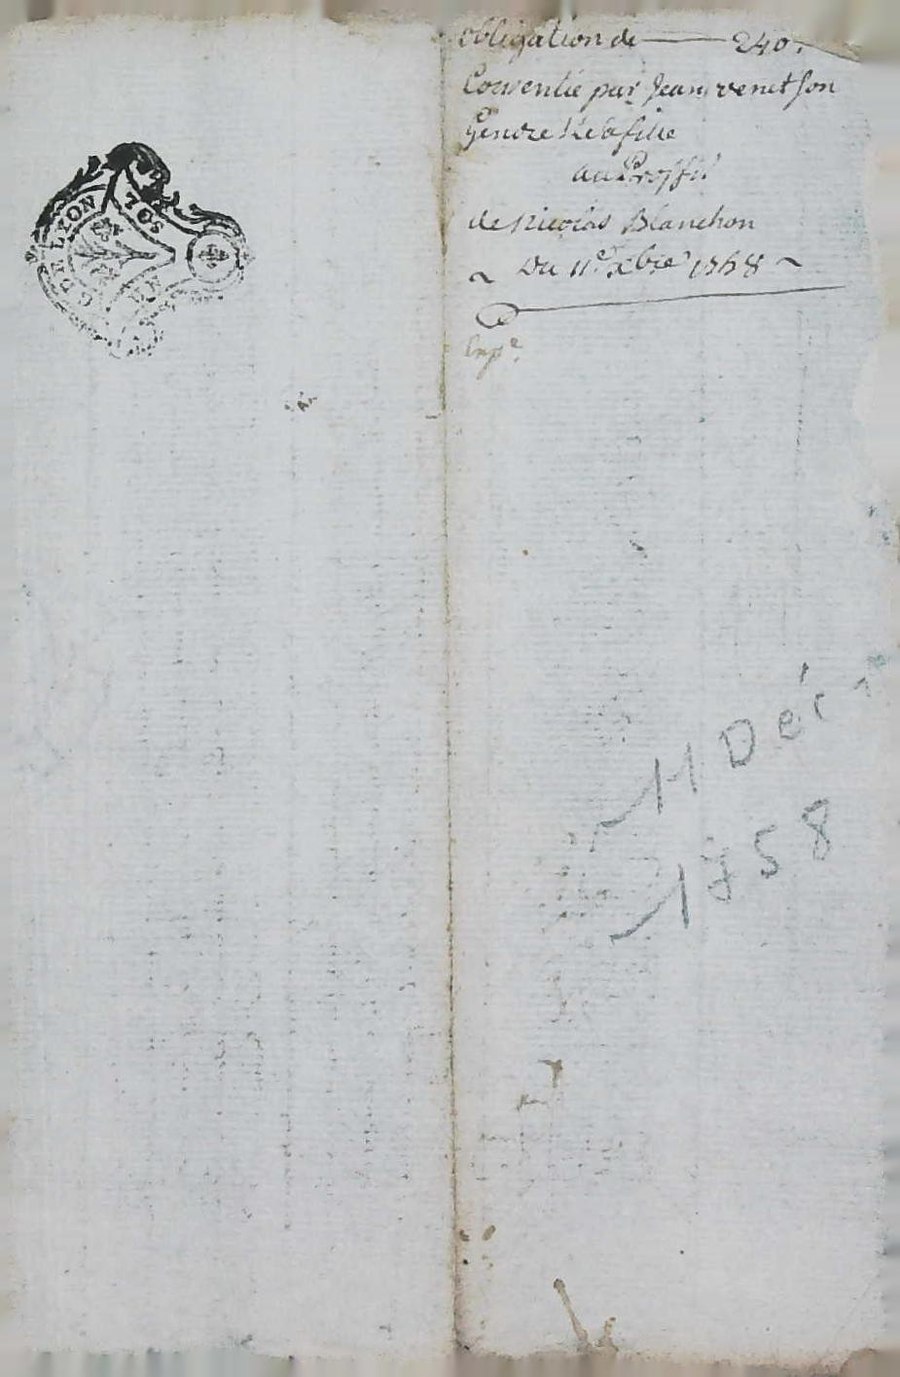 G DE LYON
obligation de — 240.
Consentie par Jean venet son
Gendre & sa fille
au Proffit
de nicolas Blanchon
~ Du 11e. xbre 1768 ~
Exp.e
11 Déc
1758